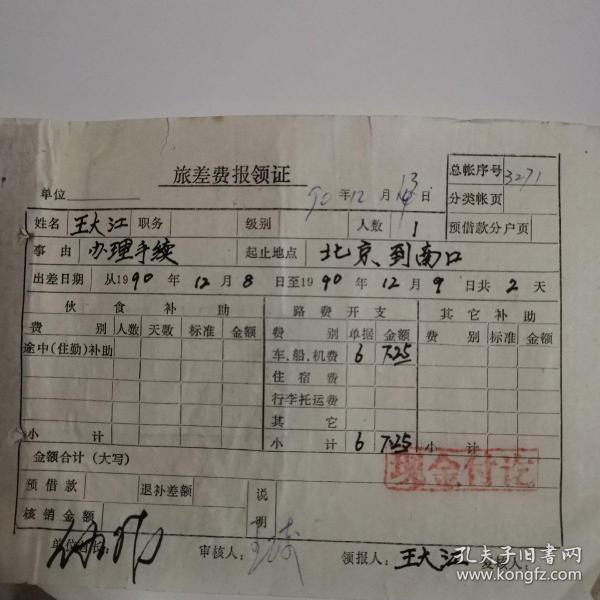 旅差费报领证
总帐序号 3271
单位 90年12月13日 分类帐页
姓名 王大江 职务 级别 人数 1 预借款分户页
事由 办理手续 起止地点 北京到南口
出差日期 从1990年12月8日至1990年12月9日共2天
伙食补助 路费开支 其它补助
费别 人数 天数 标准 金额 费别 单据 金额 费别 标准 金额
途中(住勤)补助 车、船、机费 6 7.25
住宿费
行李托运费
其它
小计 小计 6 7.25 小计
金额合计(大写) 现金付讫
预借款 退补差额 说明
核销金额
单位首长: 审核人: 领报人:王大江 发款人:
孔夫子旧书网
www.kongfz.com